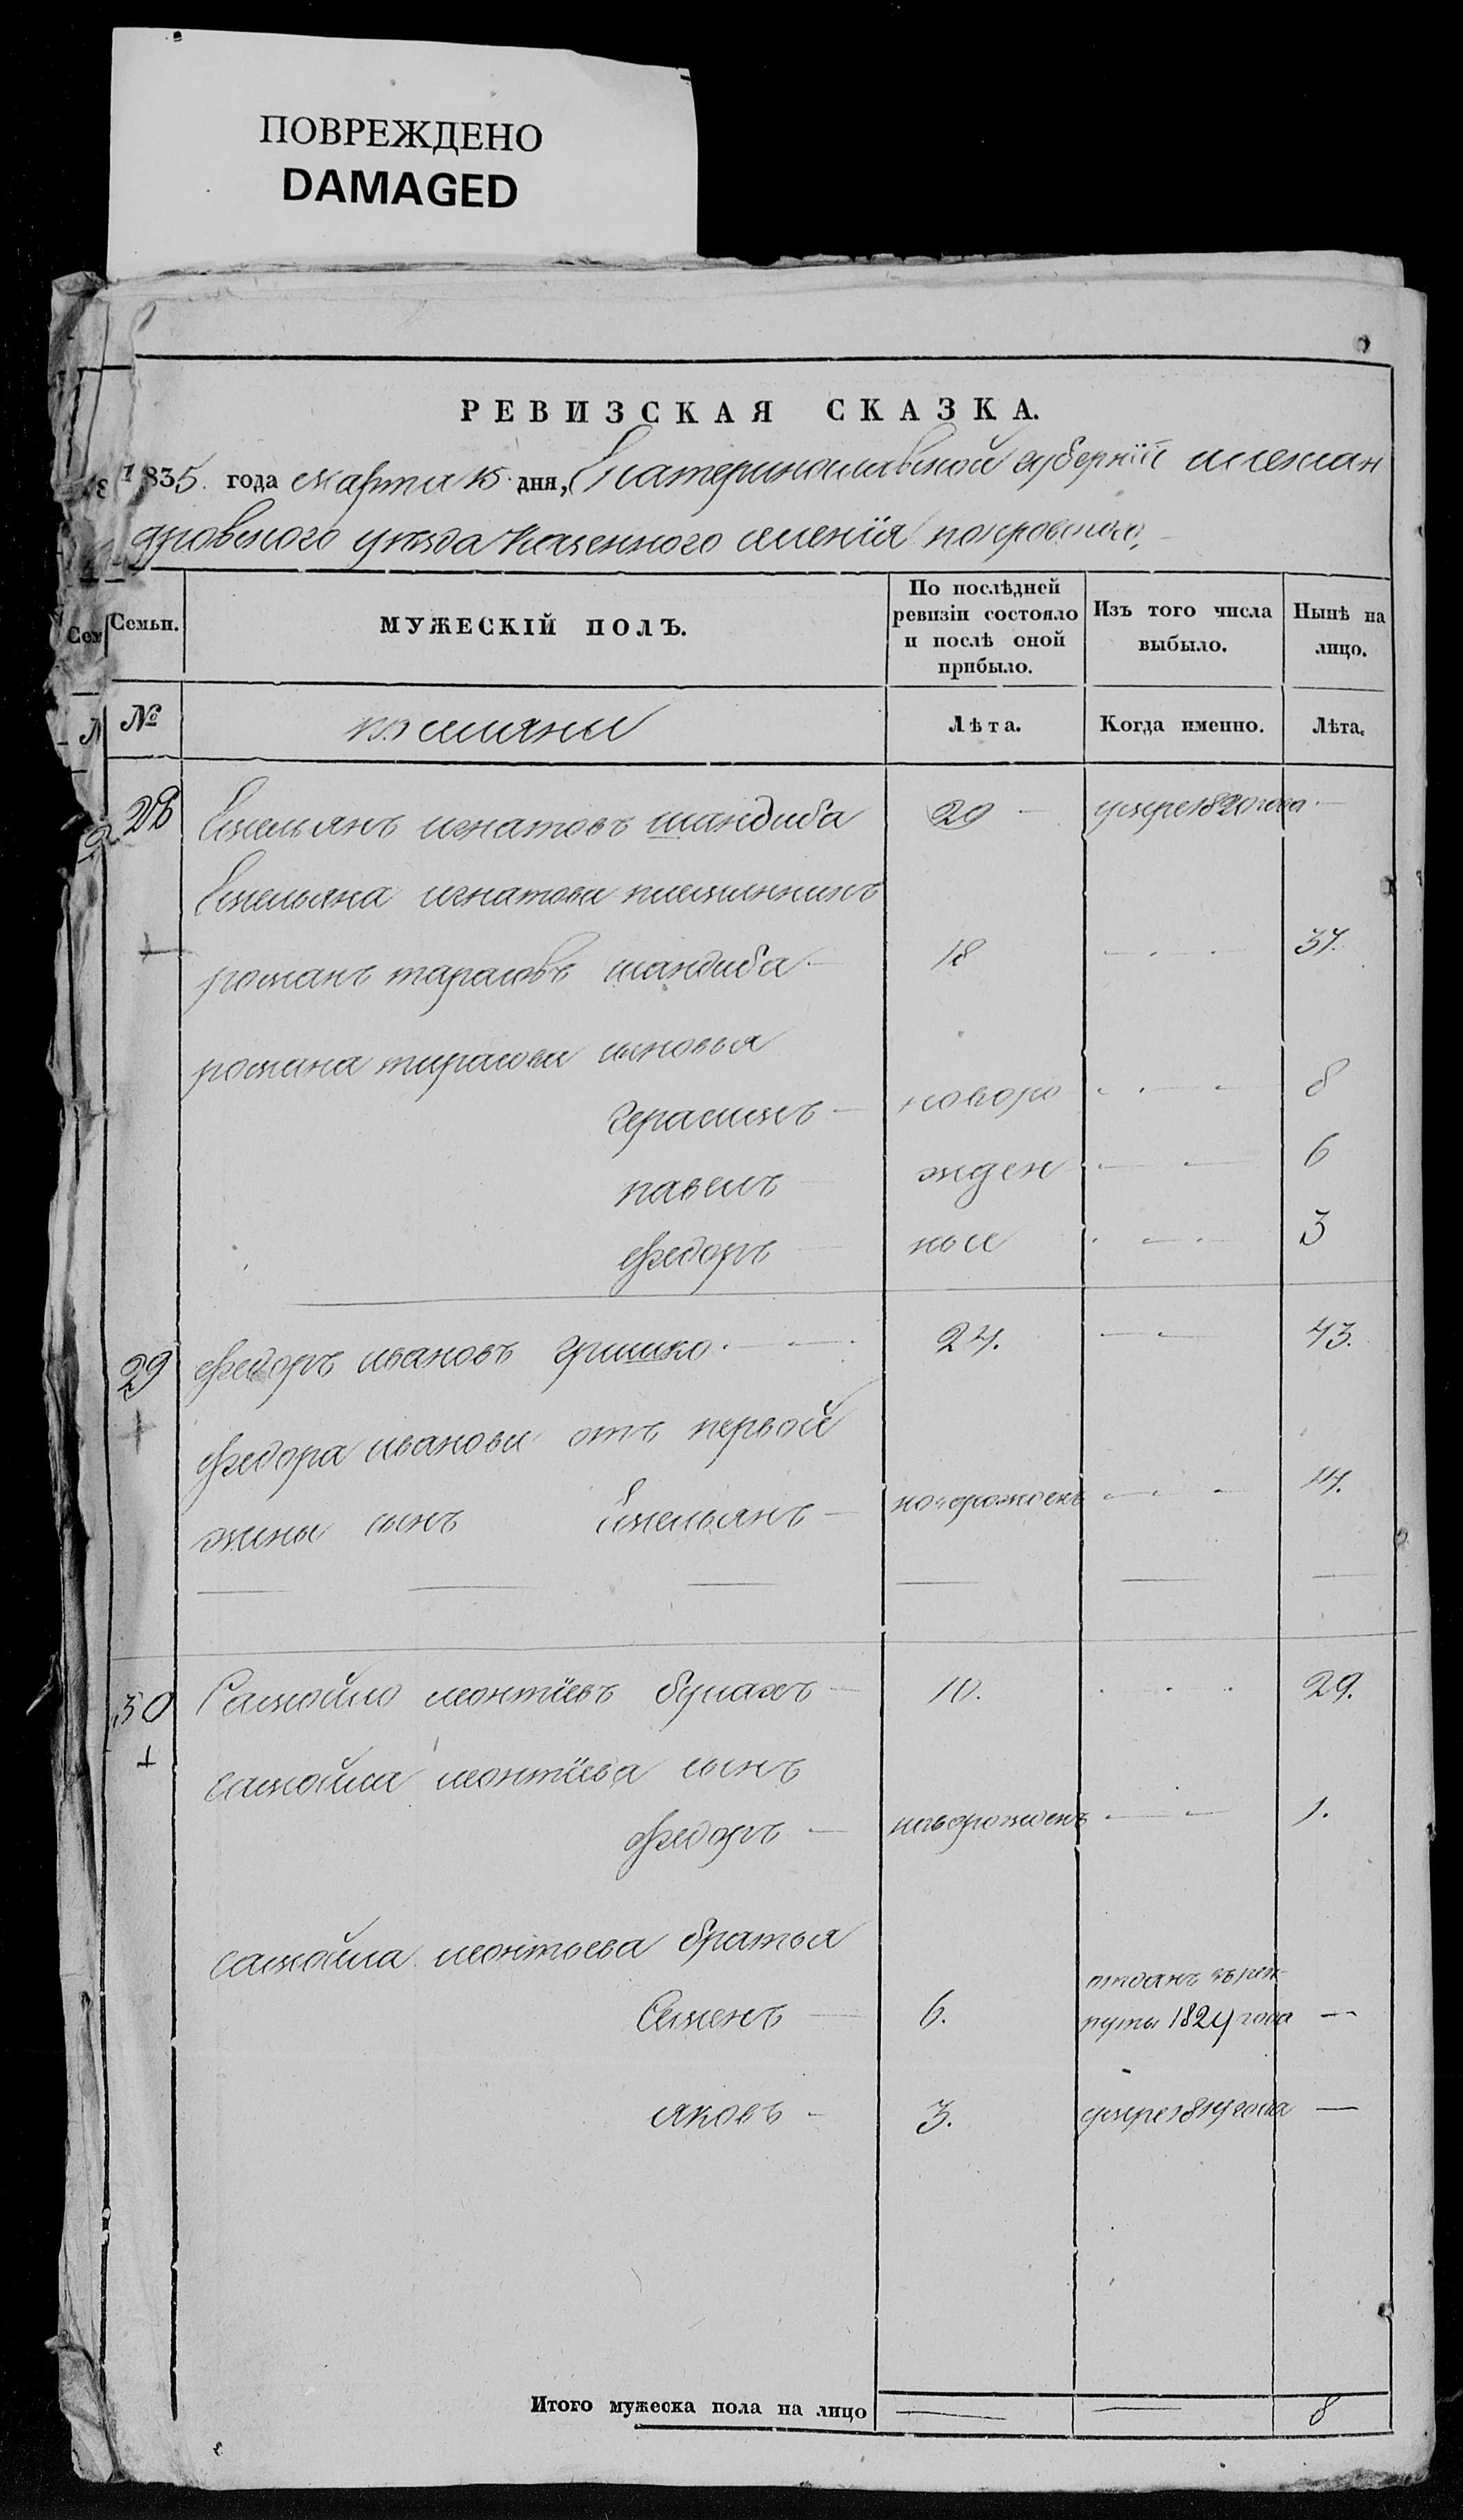 ПОВРЕЖДЕНО
DAMAGED
РЕВИЗСКАЯ СКАЗКА.
1835. года марта 15. дня, Екатеринославской губернїи алексан
дровского уезда казенного селенїя покровского,
Семьи.
МУЖЕСКІЙ ПОЛЪ.
По послѣдней ревизіи состояло и послѣ оной прибыло.
Изъ того числа выбыло.
Нынѣ на лицо.
№
Лѣта.
Когда именно.
Лѣта.
28 Емельянъ игнатовъ шандиба 29 — умре 1820 года —
Емельяна игнатова племянникъ
романъ тарасовъ шандиба — 18 — 37.
романа тарасова сыновья
герасимъ — новоро — 8
павелъ — жден — 6
федоръ — ные — 3
29 федоръ ивановъ гришко. — 24. — 43.
федора иванова отъ первой
жены сынъ Емельянъ — новорожденъ — 14.
30 Самойло леонтїевъ булахъ — 10. 29.
самойла леонтїева сынъ
федоръ — новорожденъ — 1.
самойла леонтьева братья
отданъ въ рек
Семенъ — 6. руты 1824 года —
яковъ — 3. умре 1819 года —
Итого мужеска пола на лицо — — 8